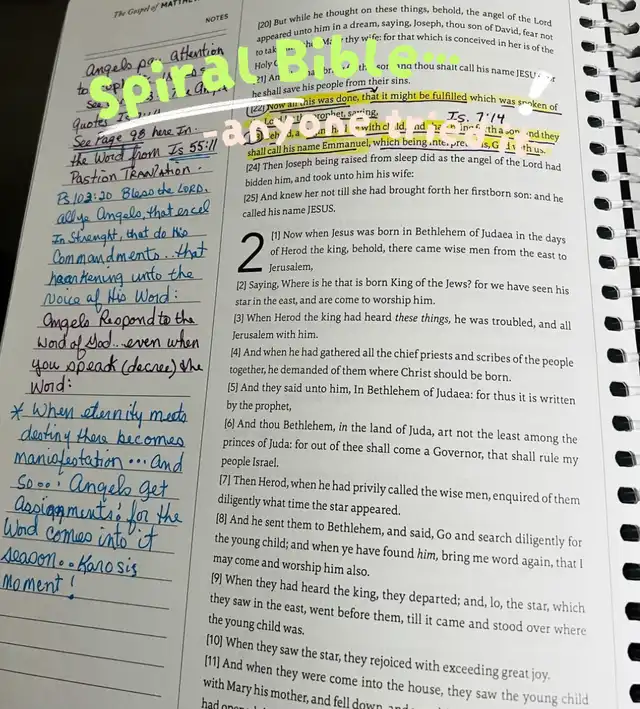 The Gospel of MATTHEW
NOTES
Angels pay attention
See
quotes
See Page 98 here In
the Word from Is 55:11
Pastion TRANSLATION.
Ps 103:20 Bless the LORD,
all ye Angels, that excel
In Strenght, that do His
Commandments... that
hearkening unto the
Voice of His Word:
Angels Respond to the
Word of God... even when
you speak (decree) the
Word:
* When eternity meets
destiny there becomes
maniafestation... And
So... Angels get
Assignments! for the
Word comes into it
season.. Karosis
Moment!
Spiral Bible...
-anyone tried
!
[20] But while he thought on these things, behold, the angel of the Lord
appeared unto him in a dream, saying, Joseph, thou son of David, fear not
to take thy wife: for that which is conceived in her is of the
Holy
[21] And son, and thou shalt call his name JESUS:
he shall save his people from their sins.
[22] Now all this was done, that it might be fulfilled which was spoken of
prophet, saying,
Is. 7:14
with child, and a son, and they
shall call his name Emmanuel, which being interpreted is, God with us.
[24] Then Joseph being raised from sleep did as the angel of the Lord had
bidden him, and took unto him his wife:
[25] And knew her not till she had brought forth her firstborn son: and he
called his name JESUS.
2
[1] Now when Jesus was born in Bethlehem of Judaea in the days
of Herod the king, behold, there came wise men from the east to
Jerusalem,
[2] Saying, Where is he that is born King of the Jews? for we have seen his
star in the east, and are come to worship him.
[3] When Herod the king had heard these things, he was troubled, and all
Jerusalem with him.
[4] And when he had gathered all the chief priests and scribes of the people
together, he demanded of them where Christ should be born.
[5] And they said unto him, In Bethlehem of Judaea: for thus it is written
by the prophet,
[6] And thou Bethlehem, in the land of Juda, art not the least among the
princes of Juda: for out of thee shall come a Governor, that shall rule my
people Israel.
[7] Then Herod, when he had privily called the wise men, enquired of them
diligently what time the star appeared.
[8] And he sent them to Bethlehem, and said, Go and search diligently for
the young child; and when ye have found him, bring me word again, that I
may come and worship him also.
[9] When they had heard the king, they departed; and, lo, the star, which
they saw in the east, went before them, till it came and stood over where
the young child was.
[10] When they saw the star, they rejoiced with exceeding great joy.
[11] And when they were come into the house, they saw the young child
with Mary his mother, and fell down, and
had